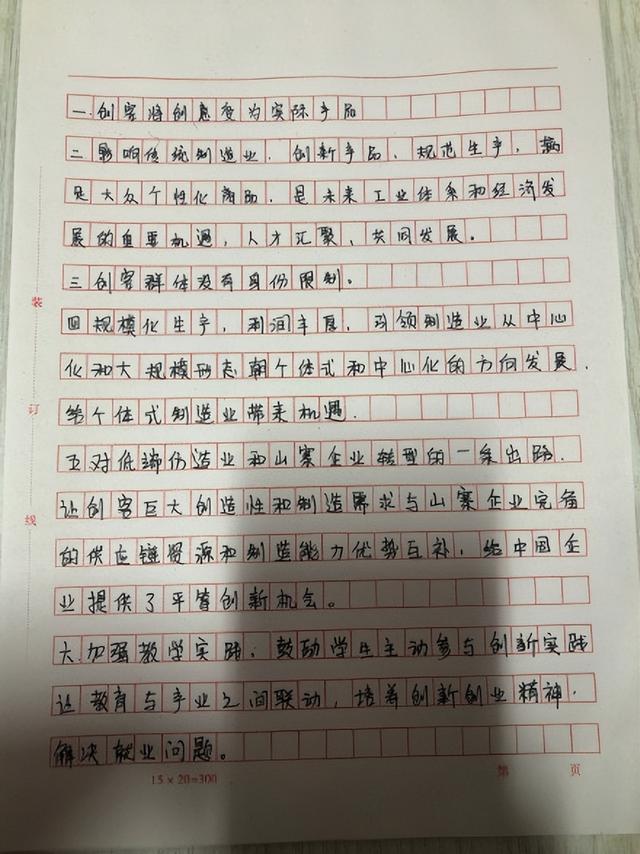 一.创客将创意变为实际产品
二.影响传统制造业.创新产品、规范生产,满
足大众个性化商品.是未来工业体系和经济发
展的重要机遇,人才汇聚、共同发展。
三创客群体没有身份限制。
四规模化生产,利润丰厚.引领制造业从中心
化和大规模形态朝个体式和中心化的方向发展.
给个体式制造业带来机遇.
五对低端仿造业和山寨企业转型的一条出路.
让创客巨大创造性和制造需求与山寨企业完备
的供应链资源和制造能力优势互补,给中国企
业提供了平等创新机会。
六.加强教学实践.鼓励学生主动参与创新实践
让教育与产业之间联动,培养创新创业精神.
解决就业问题。
装
订
线
15×20=300
第 页